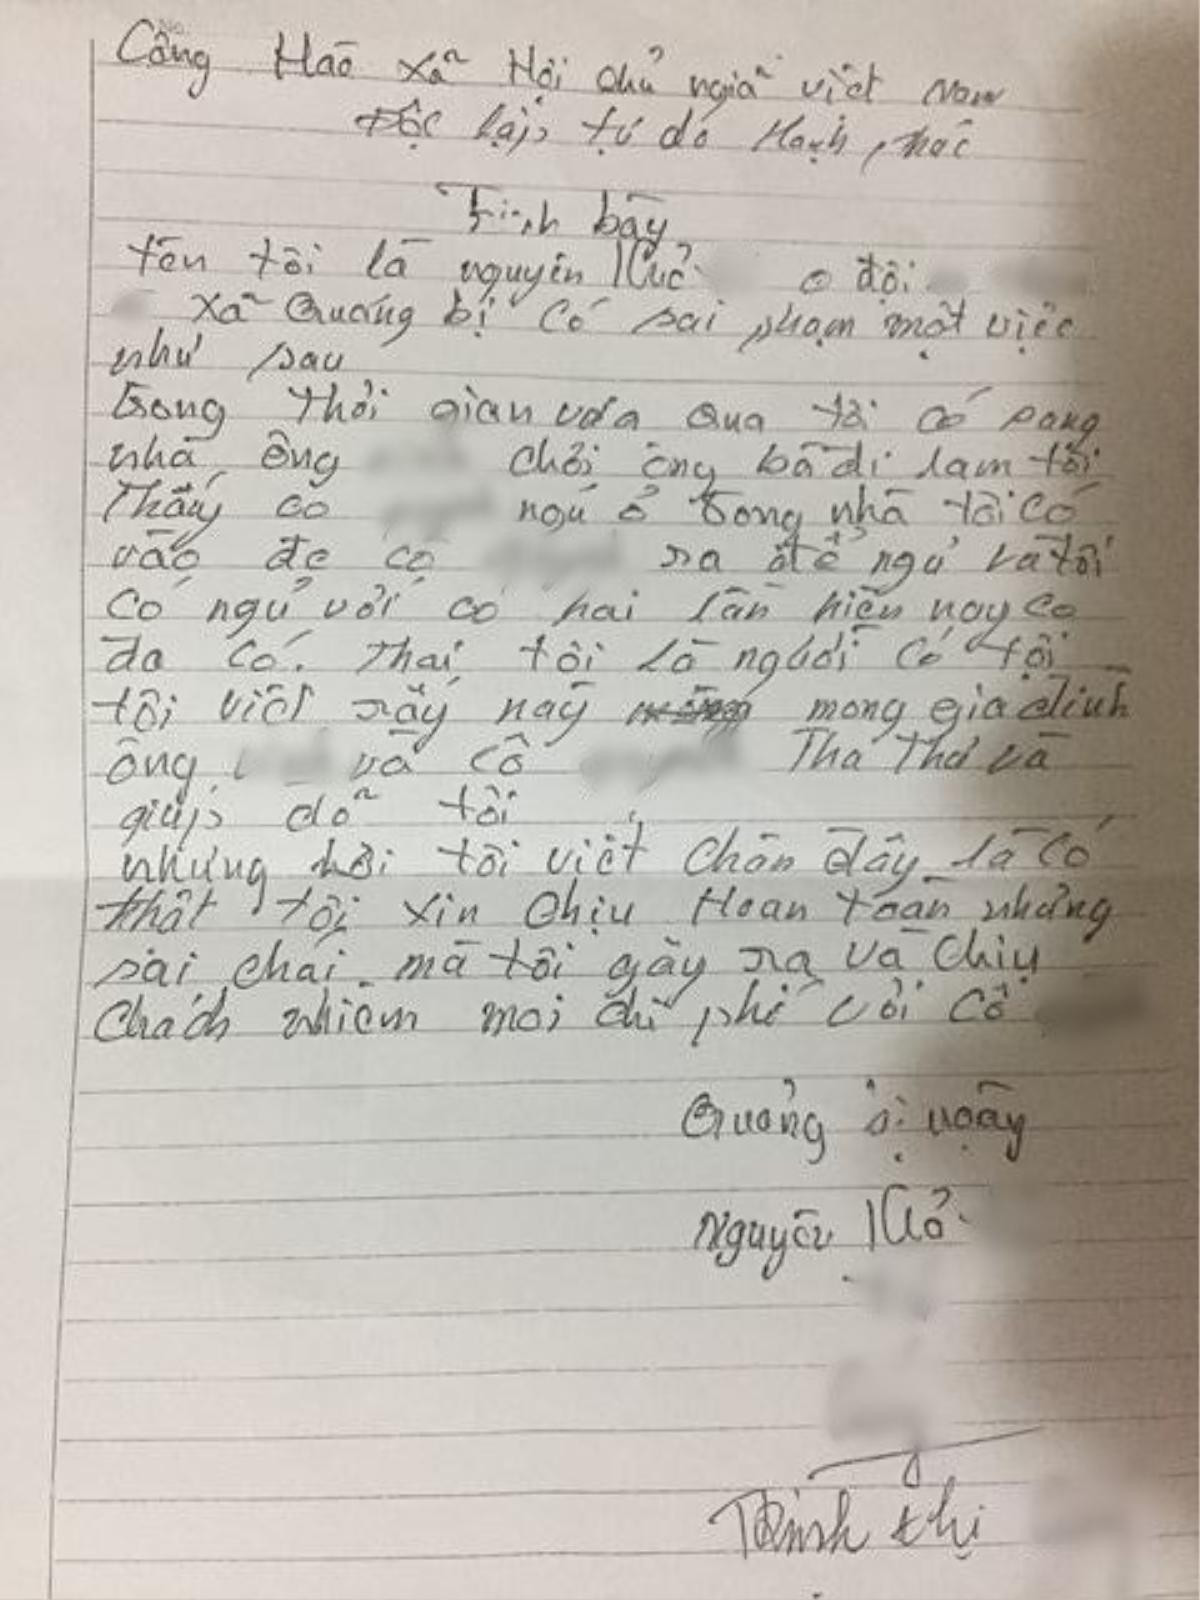 Công Haõ xã Hội chủ nghiã việt Nam
Độc lập tự dó Hạnh phúc
Trình bầy
tên tôi là nguyên Khổ ở đội
xã Quảng bị Có sai phạm một việc
như sau
trong thời gian vừa qua tôi có sang
nhà ông chơi ông bà đi làm tôi
Thấy cô ngủ ở trong nhà tôi có
vào đe cô ra để ngủ và tôi
Có ngủ với cô hai lần hiện nay cô
đa có Thai tôi là người có tội
tôi viết giấy này mong gia đình
ông và cô Tha Thơ và
giúp dỡ tôi
những nời tôi viết Chên đây là có
thật tôi xin Chịu Hoan toàn những
sai chái mà tôi gây ra và chịu
Chách nhiệm mọi chi phí với cô
Quảng bị ngày
Nguyên Khổ
Trịnh thị